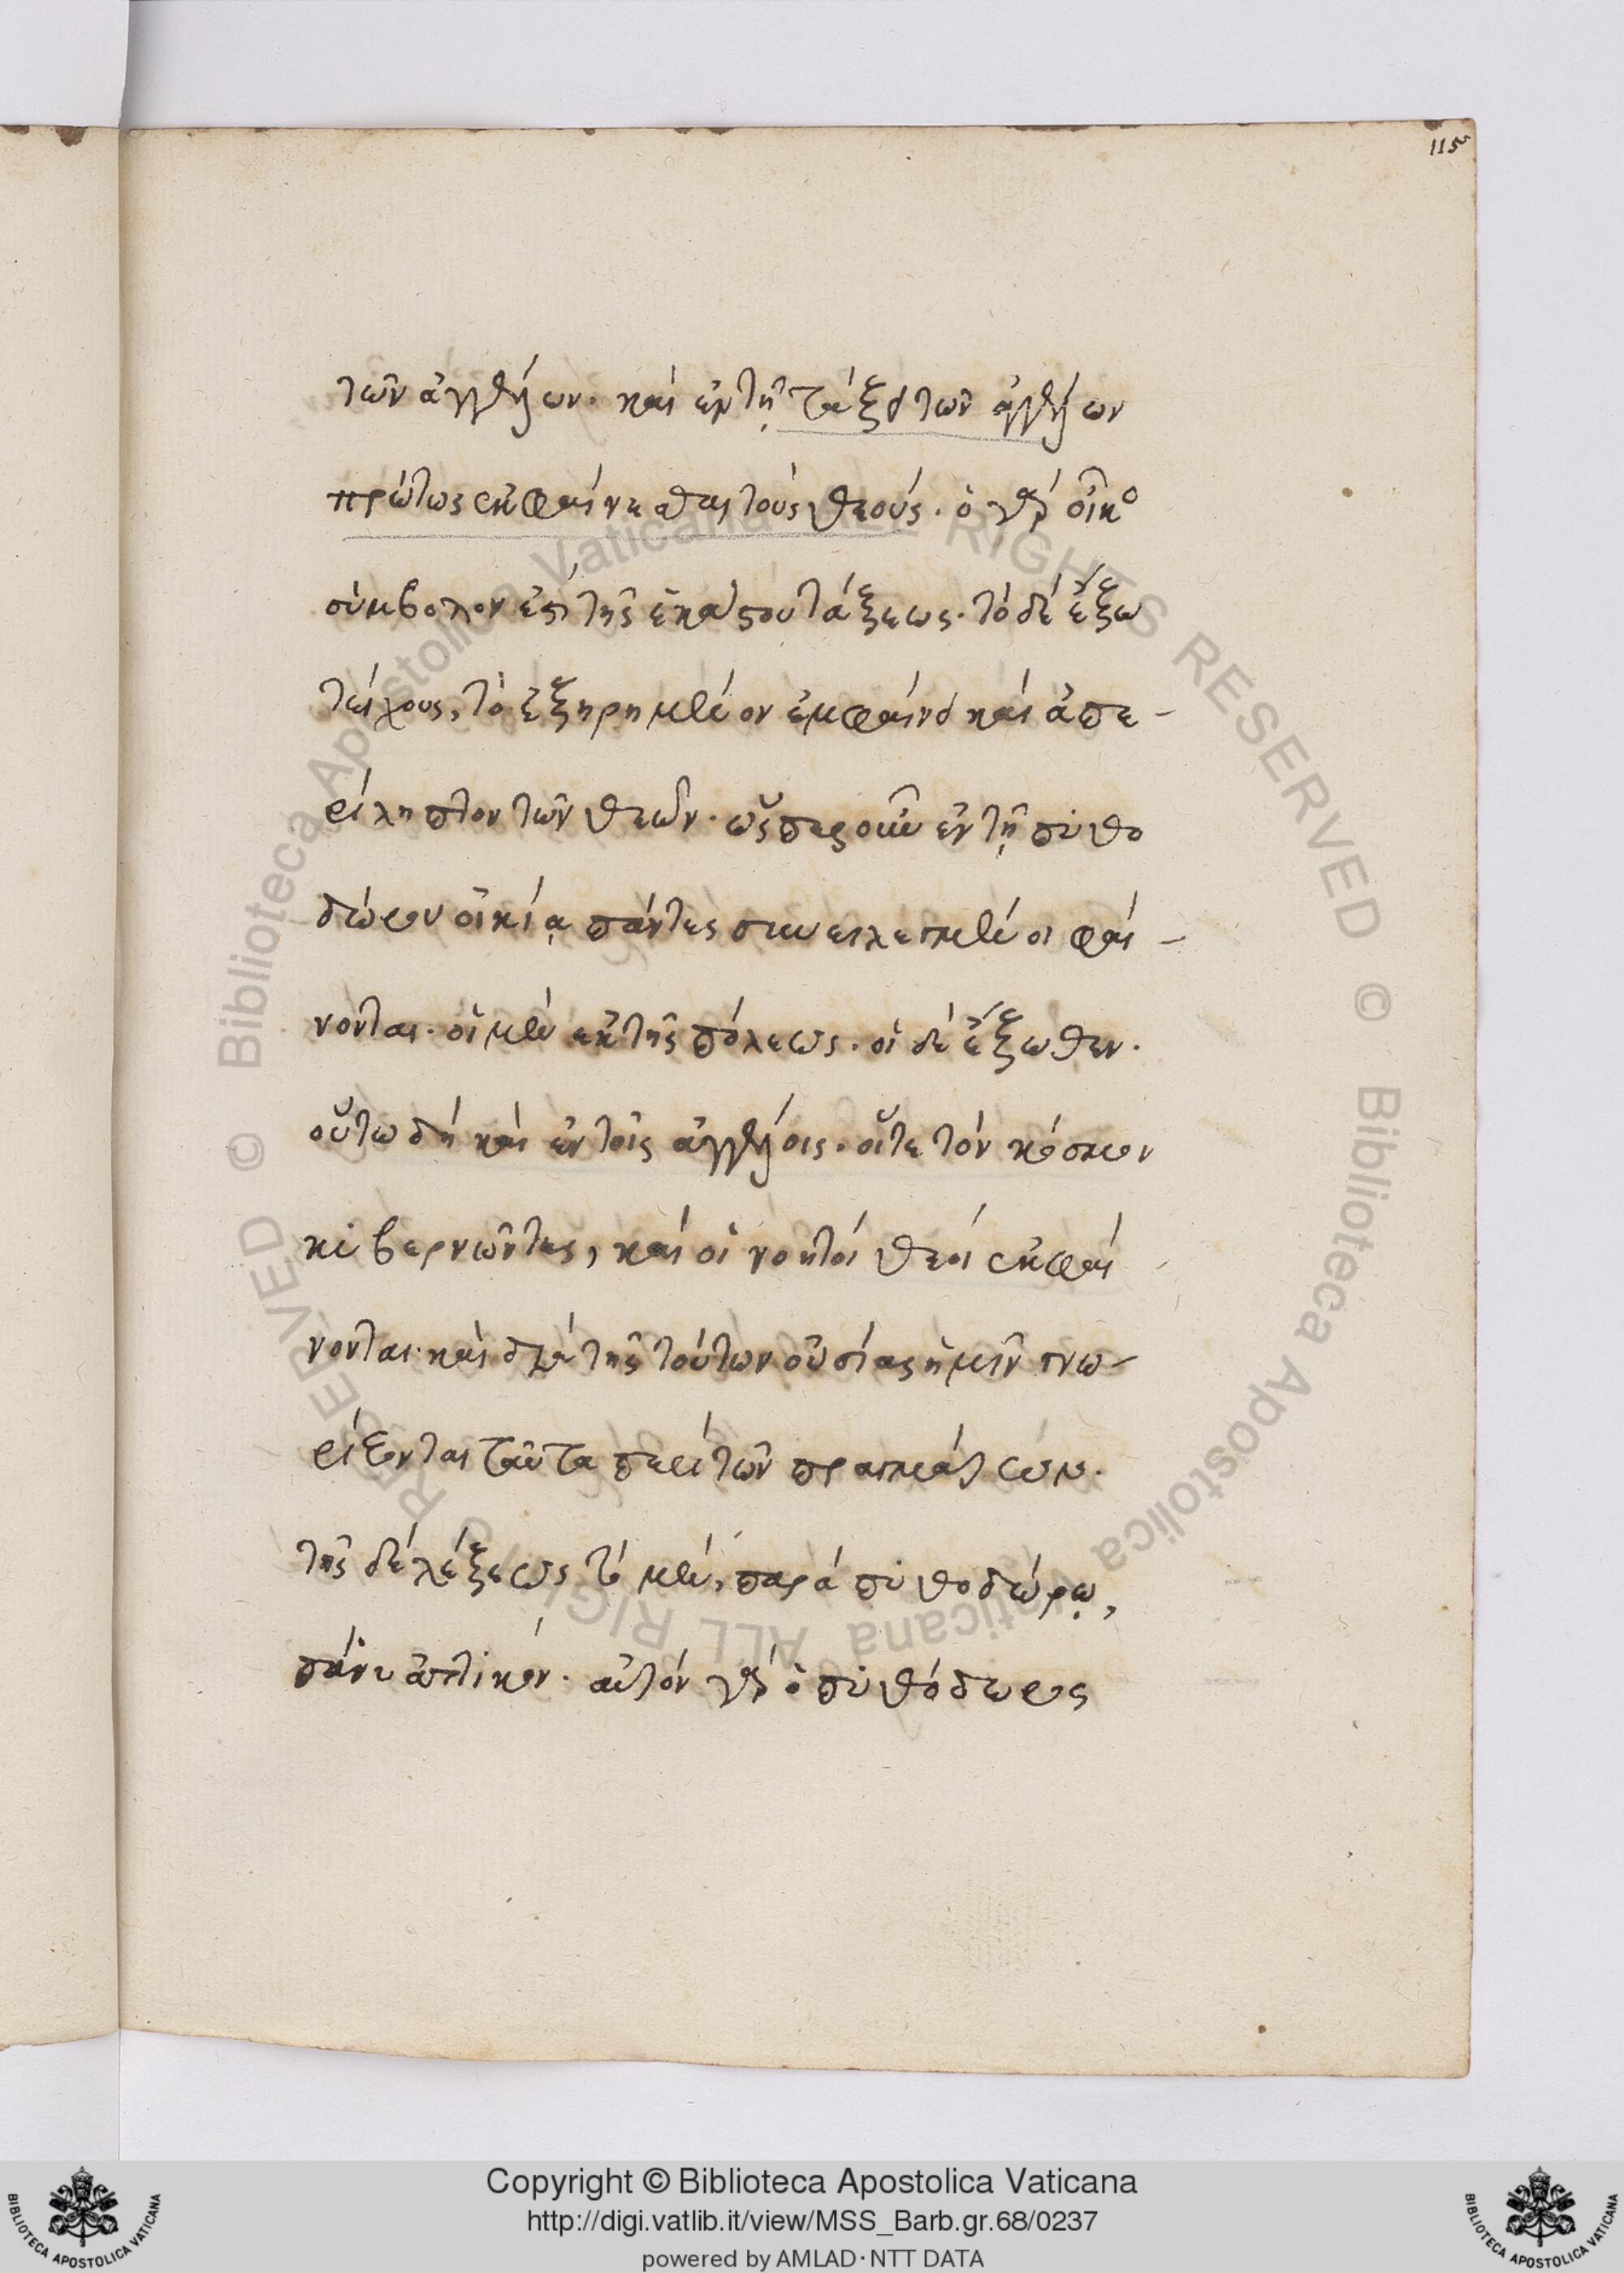 115
τῶν ἀγγέλων· καὶ ἐν τῇ τάξει τῶν ἀγγέλων
πρώτως ἐκφαίνεσθαι τοὺς θεούς· ὁ γὰρ οἶκο
σύμβολον ἐστὶ τῆς ἑκάστου τάξεως· τὸ δὲ ἔξω
τείχους, τὸ ἐξῃρημένον ἐμφαίνει καὶ ἀπε-
ρίληπτον τῶν θεῶν· ὥσπερ οὖν ἐν τῇ πυθο
δώρου οἰκίᾳ πάντες συνειλεγμένοι φαί-
νονται· οἱ μὲν ἐκ τῆς πόλεως· οἱ δὲ ἔξωθεν·
οὕτω δὴ καὶ ἐν τοῖς ἀγγέλοις· οἵτε τὸν κόσμον
κυβερνῶντες, καὶ οἱ νοητοὶ θεοὶ ἐκφαί
νονται· καὶ διὰ τῆς τούτων οὐσίας ἡμῖν γνω-
ρίζονται ταῦτα περὶ τῶν πραγμάτων·
τῆς δὲ λέξεως τὸ μὲν, παρὰ πυθοδώρῳ,
πάνυ ἀττικόν· αὐτὸν γὰρ ὁ πυθόδωρος
Biblioteca Apostolica Vaticana ALL RIGHTS RESERVED ©
Biblioteca Apostolica Vaticana ALL RIGHTS RESERVED ©
Copyright © Biblioteca Apostolica Vaticana
http://digi.vatlib.it/view/MSS_Barb.gr.68/0237
powered by AMLAD·NTT DATA
BIBLIOTECA APOSTOLICA VATICANA
BIBLIOTECA APOSTOLICA VATICANA